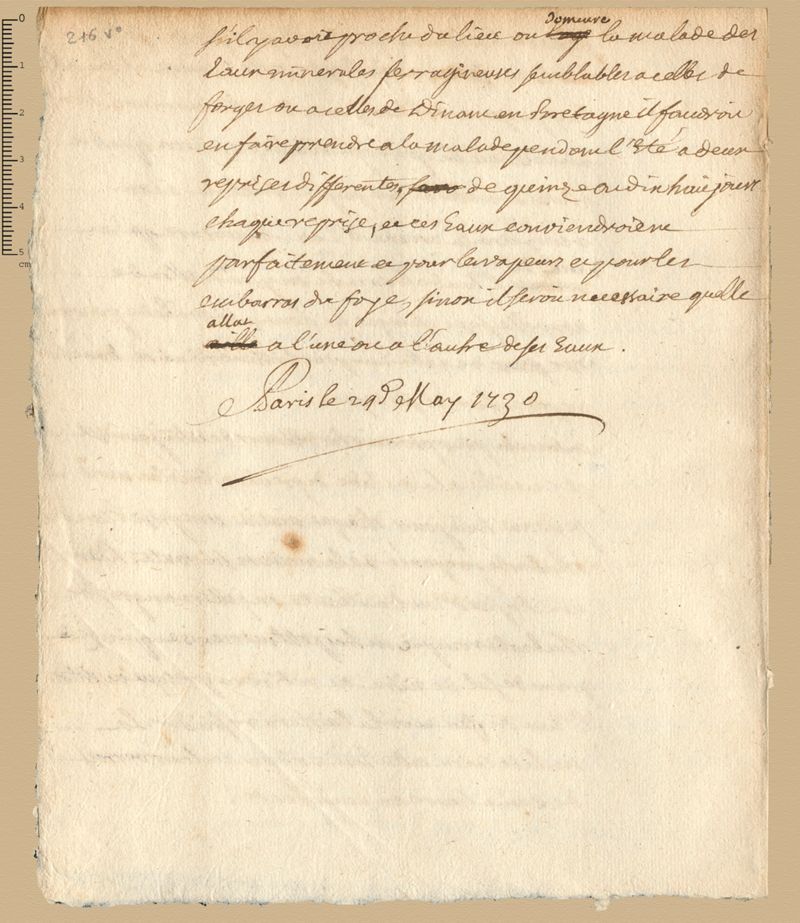 216 v°
s'il y avoit proche du lieu ou demeure la malade des
Eaux minerales ferrugineuses semblables a celles de
forges ou a celles de Dinanc en bretagne il faudroit
en faire prendre a la malade pendant l'Eté a deux
reprises differentes, de quinze ou dix huit jours
chaque reprise, et ces Eaux conviendroient
parfaitement et pour les vapeurs et pour les
embarras du foye, sinon il seroit necessaire quelle
allat a l'une ou a l'autre de ses Eaux.
Paris le 29e May 1730
0
1
2
3
4
5
cm